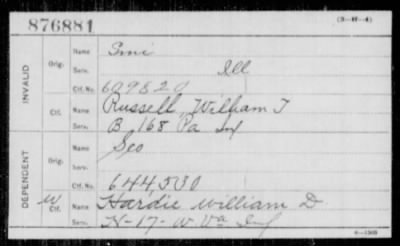 876881
(3-H-4)
INVALID
Orig.
Name
Smi
Serv.
Ill
Ctf. No.
609820
Ctf.
Name
Russell, William T
Serv.
B 168 Pa Inf
DEPENDENT
Orig.
Name
Geo
Serv.
Ctf. No.
644530
W
Ctf.
Name
Hardie William D
Serv.
H-17- W Va Inf